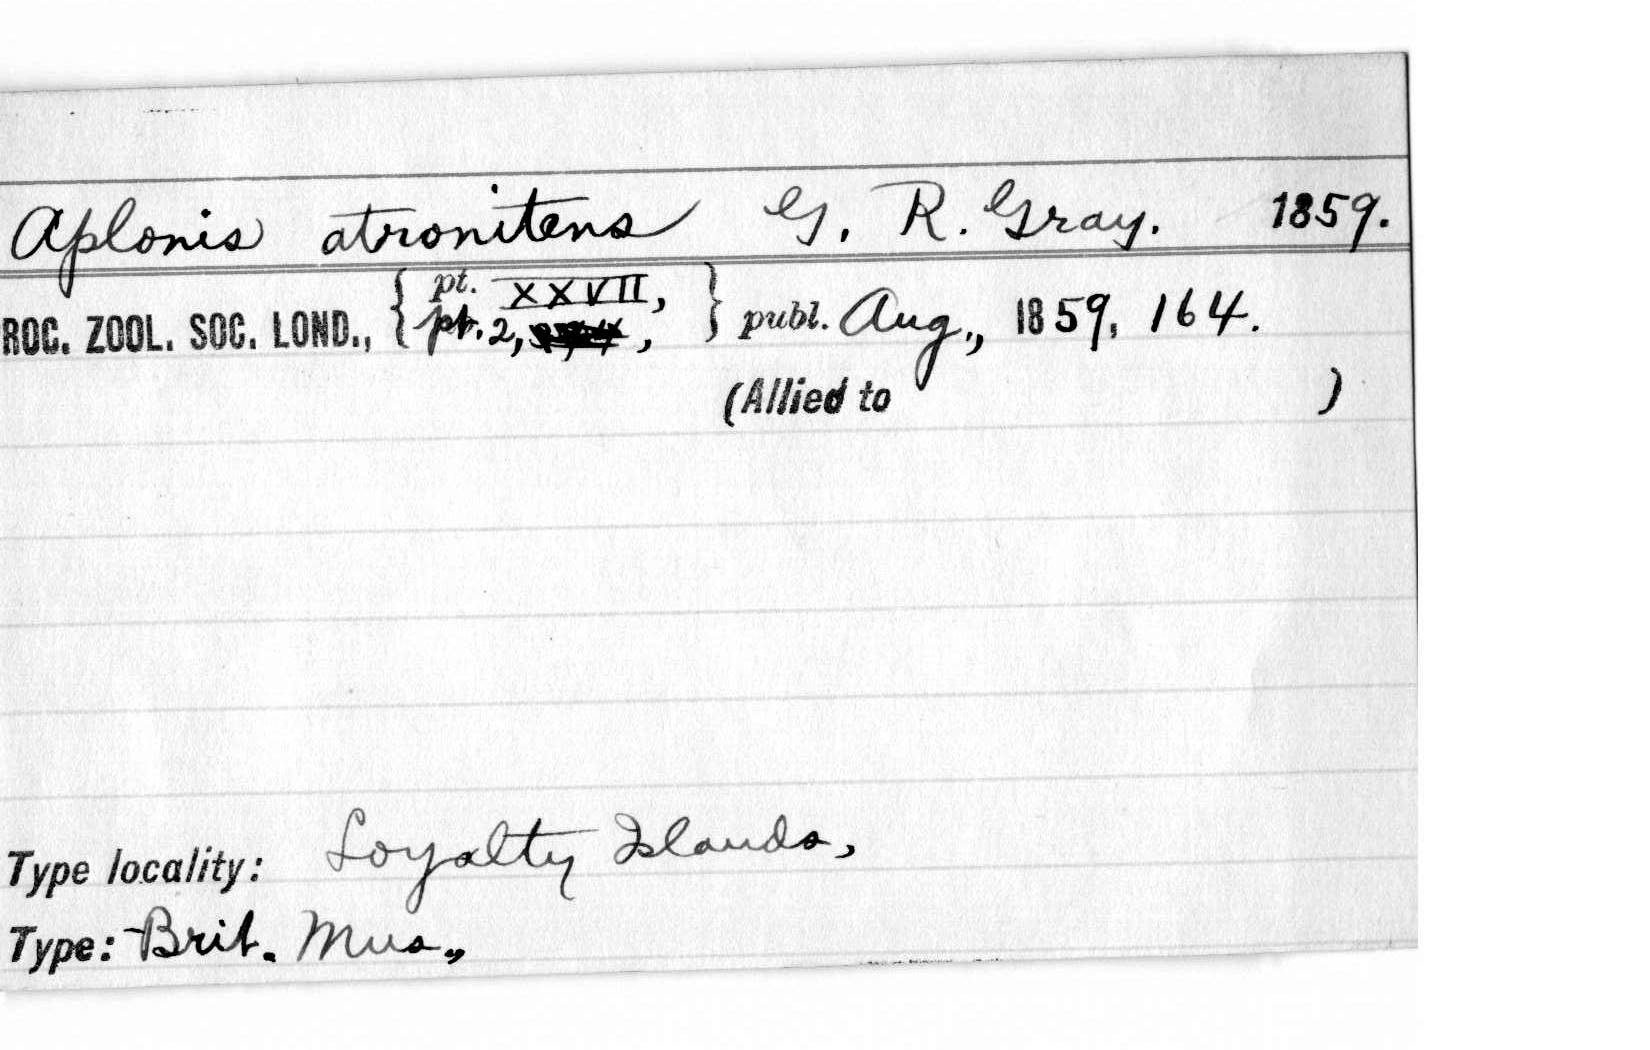 Aplonis atronitens G. R. Gray. 1859.
ROC. ZOOL. SOC. LOND., { pt. XXVII, pt. 2, , } publ. Aug., 1859, 164.
(Allied to )
Type locality: Loyalty Islands,
Type: Brit. Mus.,